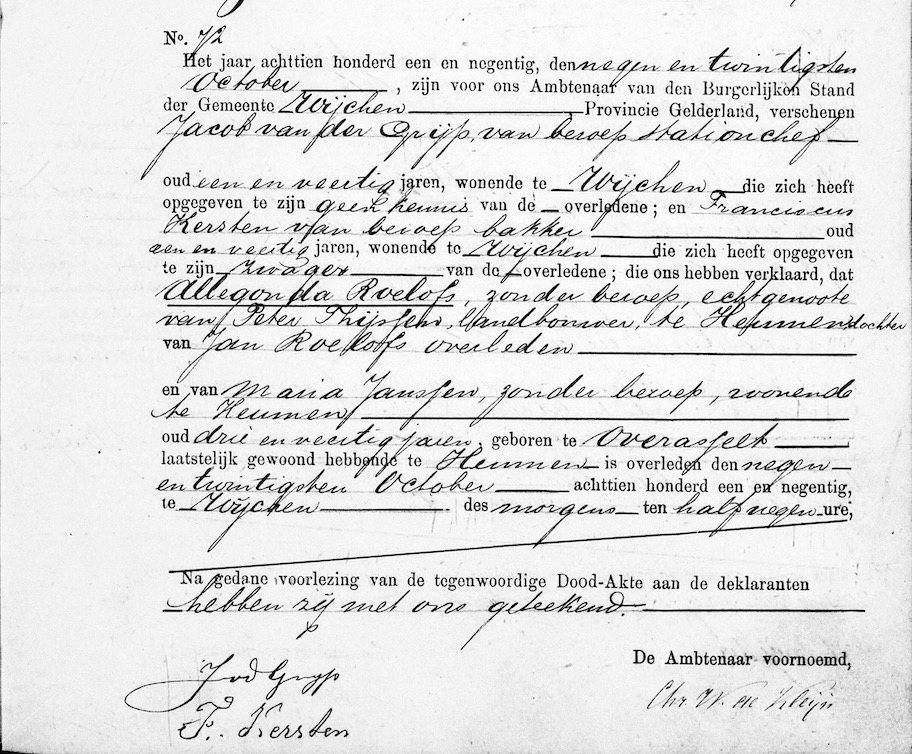 No. 72
Het jaar achttien honderd een en negentig, den negen en twintigsten
October, zijn voor ons Ambtenaar van den Burgerlijken Stand
der Gemeente Wijchen Provincie Gelderland, verschenen
Jacob van der Grijp, van beroep stationchef
oud een en veertig jaren, wonende te Wijchen die zich heeft
opgegeven te zijn geen kennis van de overledene; en Franciscus
Kersten van beroep bakker oud
een en veertig jaren, wonende te Wijchen die zich heeft opgegeven
te zijn zwager van de overledene; die ons hebben verklaard, dat
Allegonda Roelofs, zonder beroep, echtgenoote
van Peter Thijssen, landbouwer, te Heumen dochter
van Jan Roelofs overleden
en van Maria Janssen, zonder beroep, wonende
te Heumen
oud drie en veertig jaren, geboren te Overasselt
laatstelijk gewoond hebbende te Heumen is overleden den negen
en twintigsten October achttien honderd een en negentig,
te Wijchen des morgens ten half negen ure;
Na gedane voorlezing van de tegenwoordige Dood-Akte aan de deklaranten
hebben zij met ons geteekend.
De Ambtenaar voornoemd,
J vd Gryp
Chr. W. de Kleijn
F. Kersten